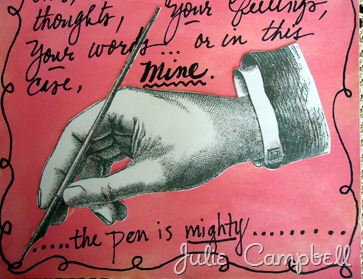 thoughts, your feelings,
your words... or in this
case, mine.
.....the pen is mighty.........
Julie Campbell